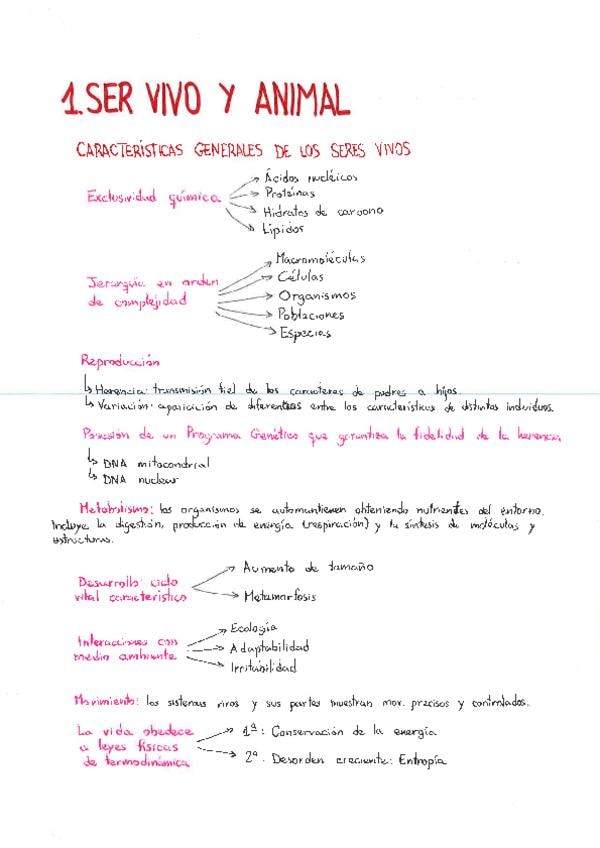 1. SER VIVO Y ANIMAL
CARACTERÍSTICAS GENERALES DE LOS SERES VIVOS
Exclusividad química
Ácidos nucléicos
Proteínas
Hidratos de carbono
Lípidos
Jerarquía en orden
de complejidad
Macromoléculas
Células
Organismos
Poblaciones
Especies
Reproducción
Herencia: transmisión fiel de los caracteres de padres a hijos.
Variación: aparición de diferentes entre los características de distintos individuos.
Posesión de un Programa Genético que garantiza la fidelidad de la herencia
DNA mitocondrial
DNA nuclear
Metabolismo: los organismos se automantienen obteniendo nutrientes del entorno.
Incluye la digestión, producción de energía (respiración) y la síntesis de moléculas y
estructuras.
Desarrollo: ciclo
vital característico
Aumento de tamaño
Metamorfosis
Interacciones con
medio ambiente
Ecología
Adaptabilidad
Irritabilidad
Movimiento: los sistemas vivos y sus partes muestran mov. precisos y controlados.
La vida obedece
a leyes físicas
de termodinámica
1ª: Conservación de la energía
2ª. Desorden creciente: Entropía